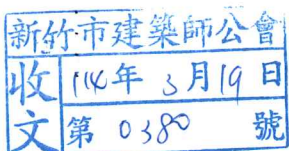 新竹市建築師公會
收文
114年3月19日
第0380號